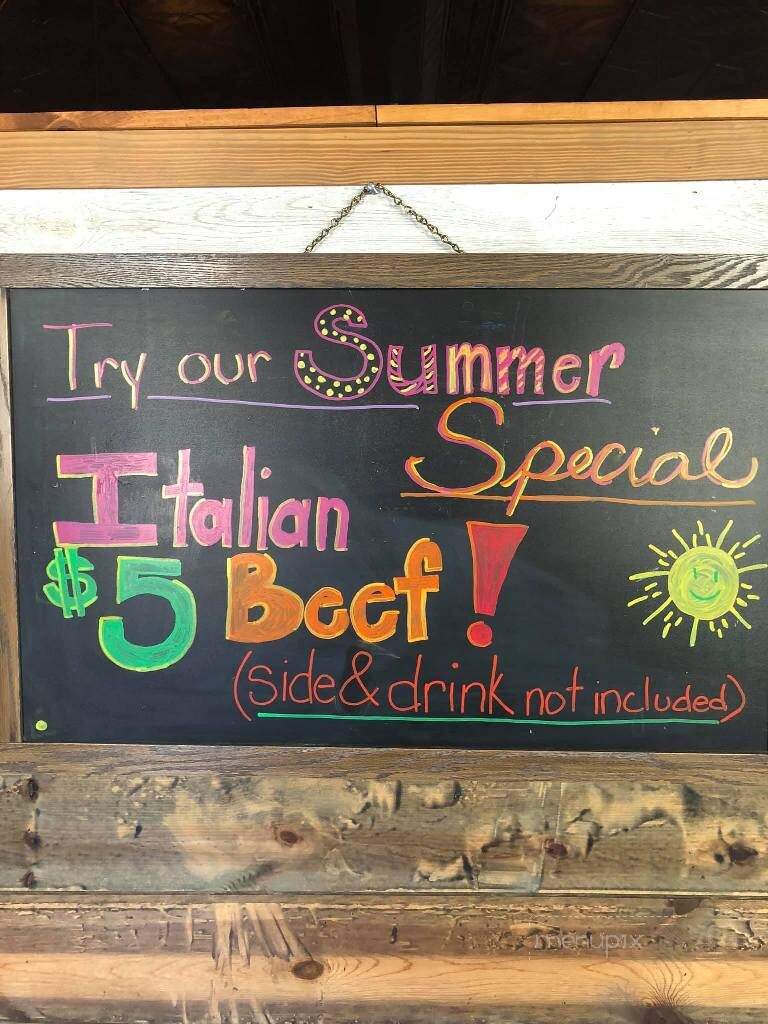 Try our Summer
Special
Italian
$5 Beef!
(side & drink not included)
menupix